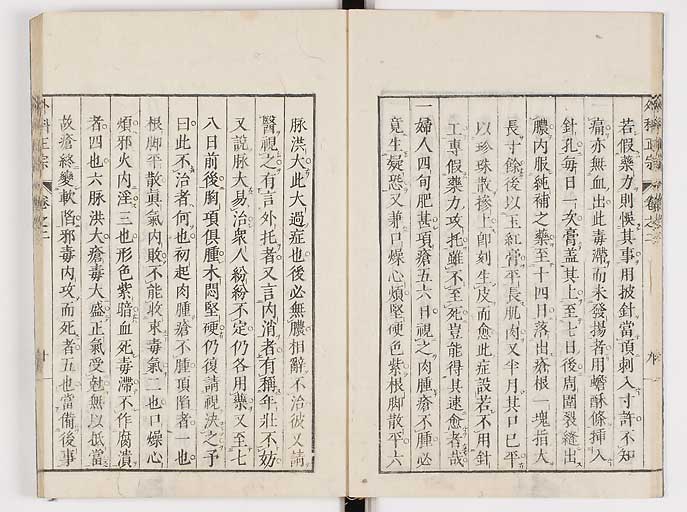 若假藥力則悞其事用披針當頂刺入寸許不知
痛亦無血出此毒滯而未發揚者用蟾酥條挿入
針孔每日一次膏盖其上至七日後周圍裂縫出
膿内服純補之藥至十四日落出瘡根一塊指大
長寸餘後以玉紅膏平長肌肉又半月其口已平
以珍珠散摻上卽刻生皮而愈此症設若不用針
工專假藥力攻托雖不至死豈能得其速愈者哉
一婦人四旬肥甚項瘡五六日視之肉腫瘡不腫必
竟生疑恐又兼口燥心煩堅硬色紫根脚散平六
脉洪大此大過症也後必無膿相辭不治彼又請
醫視之有言外托者又言内消者有稱年壯不妨
又說脉大易治衆人紛紛不定仍各用藥又至七
八日前後胸項俱腫木悶堅硬仍復請視決之予
曰此不治者何也初起肉腫瘡不腫項陷者一也
根脚平散眞氣内敗不能收束毒氣二也口燥心
煩邪火内淫三也形色紫暗血死毒滯不作腐潰
者四也六脉洪大瘡毒大盛正氣受虧無以抵當
故瘡終變軟陷邪毒内攻而死者五也當備後事
外科正宗
卷之二
十
外科正宗
卷之二
九